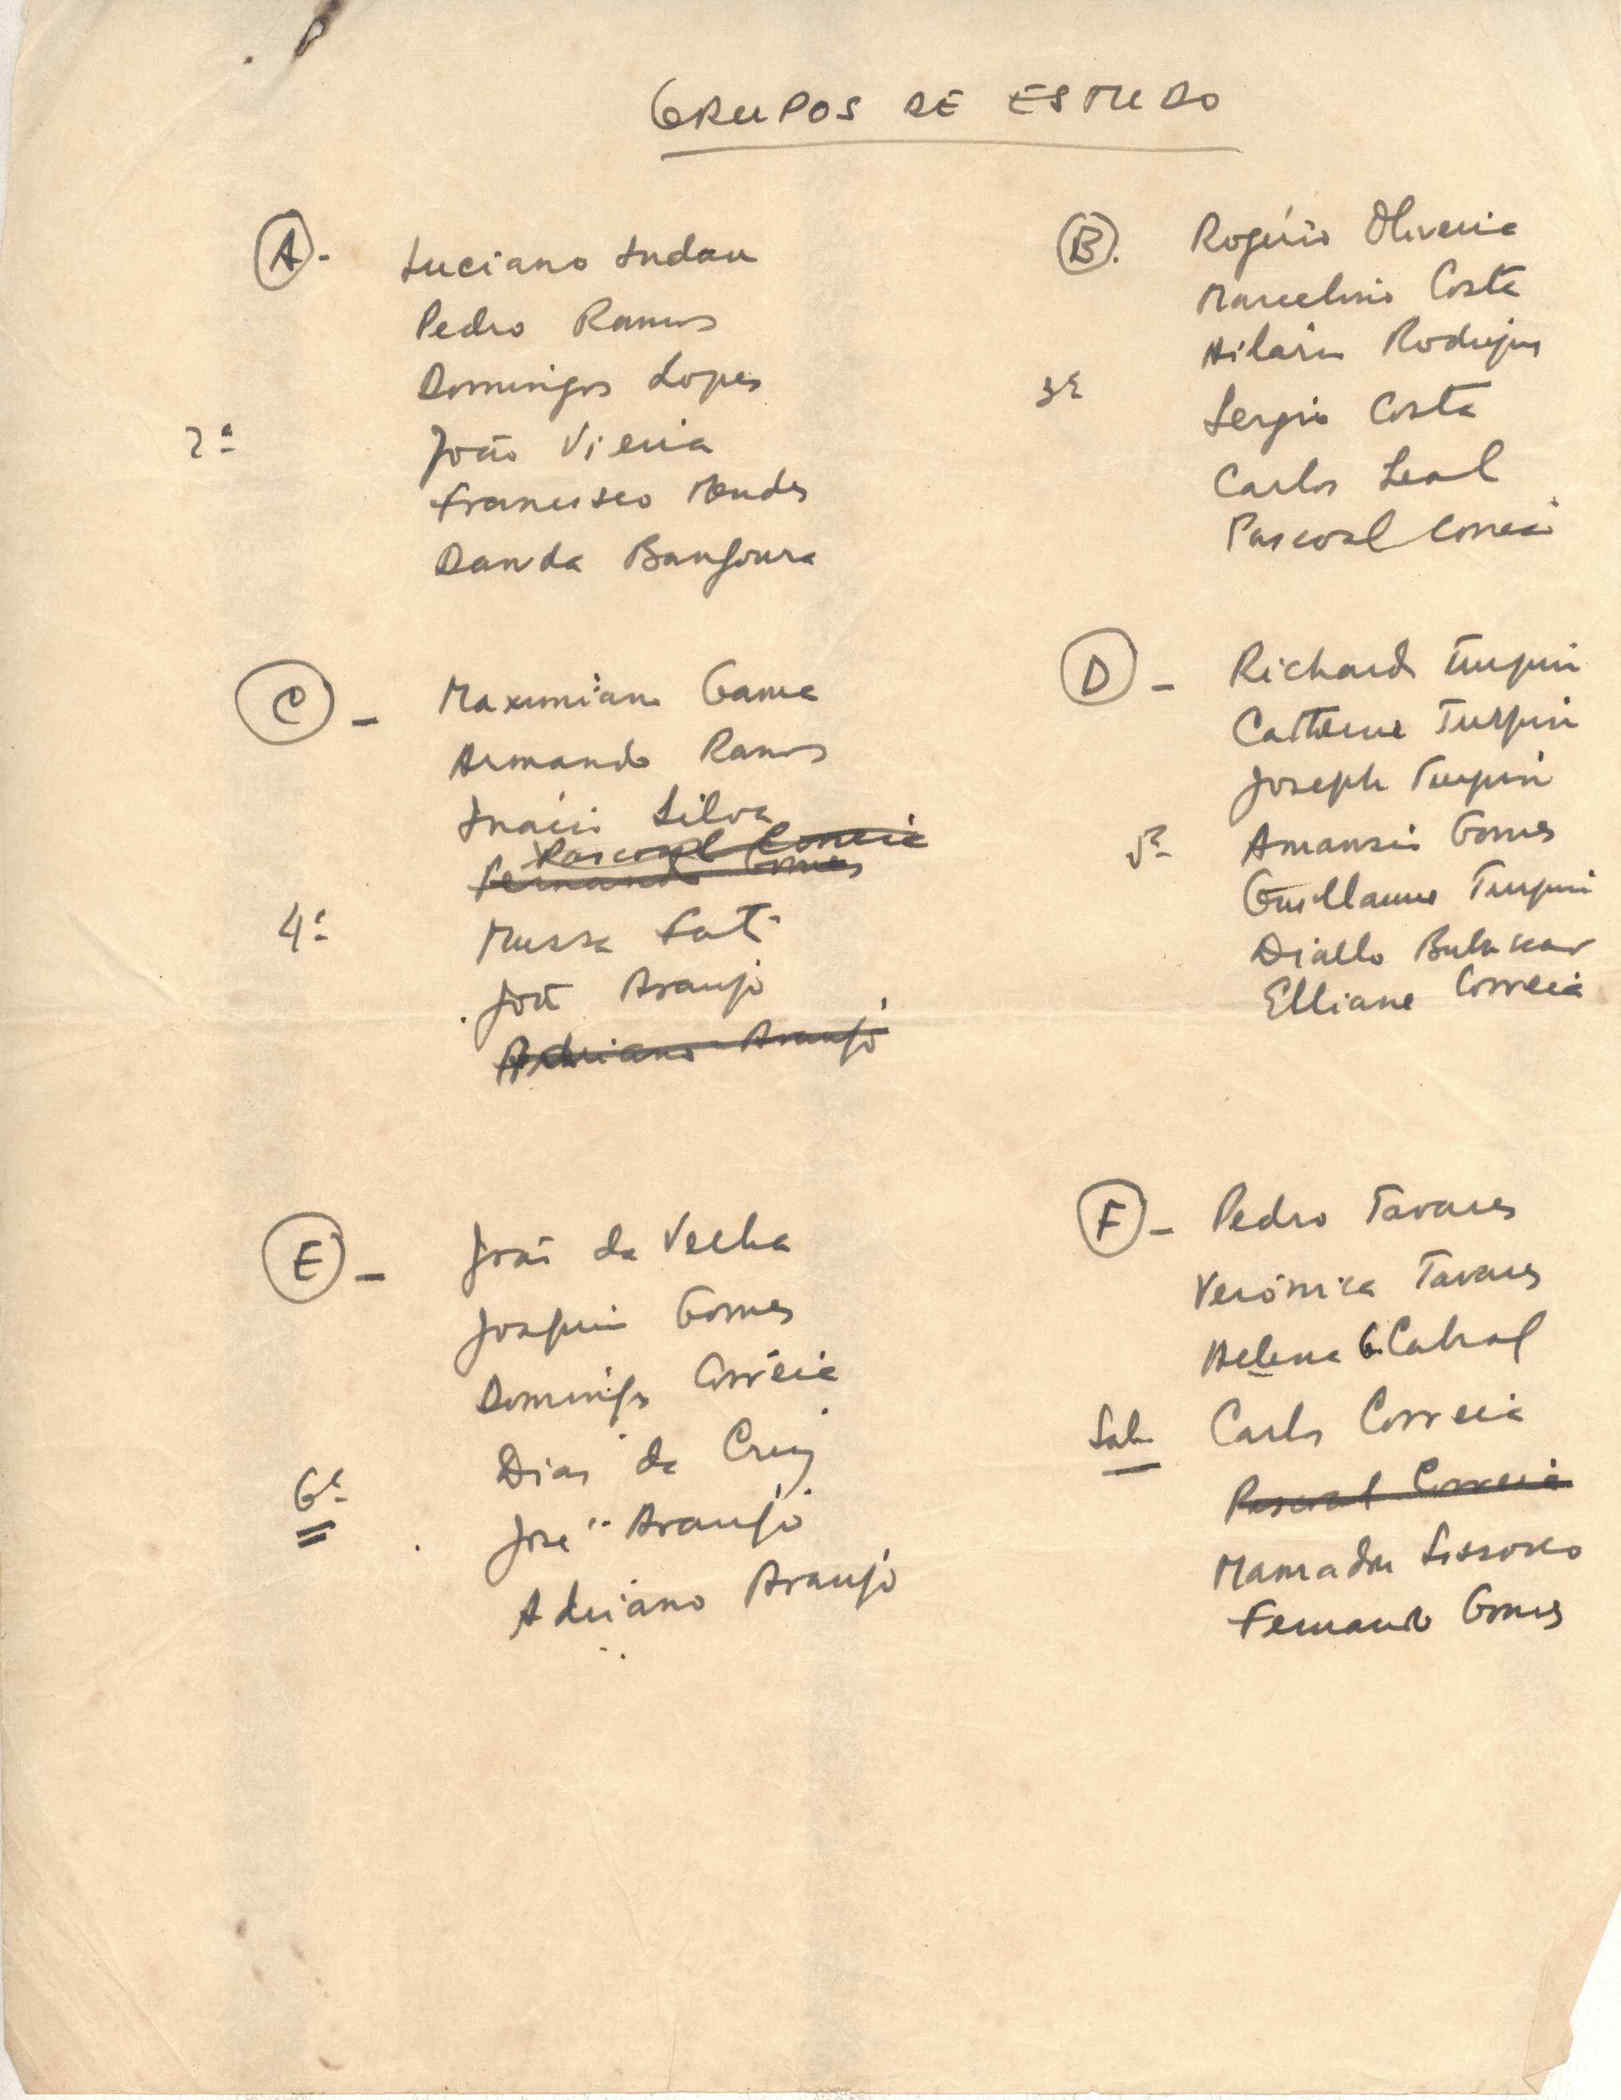 GRUPOS DE ESTUDO
A - Luciano Indau
Pedro Ramos
Domingos Lopes
2ª João Vieira
Francisco Mendes
Danda Bangoura
B. Rogério Oliveira
Marcelino Costa
Hilário Rodrigues
3ª Sergio Costa
Carlos Leal
Pascoal Correia
C - Maximiano Gama
Armando Ramos
Inácio Silva
Pascoal Correia
Fernando Gomes
4ª Mussa Fati
José Araujo
Adriano Araujo
D - Richard Turpin
Catherine Turpin
Joseph Turpin
5ª Amansio Gomes
Guillaume Turpin
Diallo
Elliane Correia
E - João da
Joaquim Gomes
Domingos Correia
Dias da Cruz
6ª José Araujo
Adriano Araujo
F - Pedro Tavares
Verónica Tavares
Helena G. Cabral
Sab Carlos Correia
Pascoal Correia
Mamadu Sissoko
Fernando Gomes